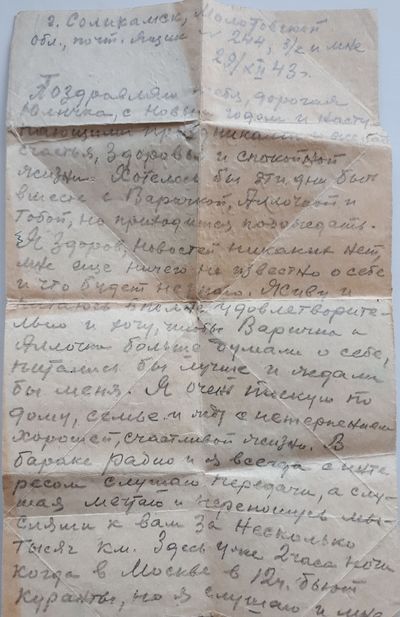 г. Соликамск, Молотовской
обл., почт. ящик № 244, з/к и мне
29/XII 43 г.
Поздравляю тебя, дорогая
Юличка, с новым годом и насту
пающими праздниками и желаю
счастья, здоровья и спокойной
жизни. Хотелось бы эти дни быть
вместе с Варичкой, Аллочкой и
тобой, но приходится подождать.
Я здоров, новостей никаких нет,
мне еще ничего не известно о себе
и что будет не знаю. Живу и
питаюсь вполне удовлетворите-
льно и хочу, чтобы Варичка и
Аллочка больше думали о себе,
питались бы лучше и ждали
бы меня. Я очень тискую по
дому, семье и жду с нетерпением
хорошей, счастливой жизни. В
бараке радио и я всегда с инте
ресом слушаю передачи, а слу-
шая мечтаю и переношусь мы-
слями к вам за несколько
тысяч км. Здесь уже 2 часа ночи
когда в Москве в 12 ч. бьют
куранты, но я слушаю и мне